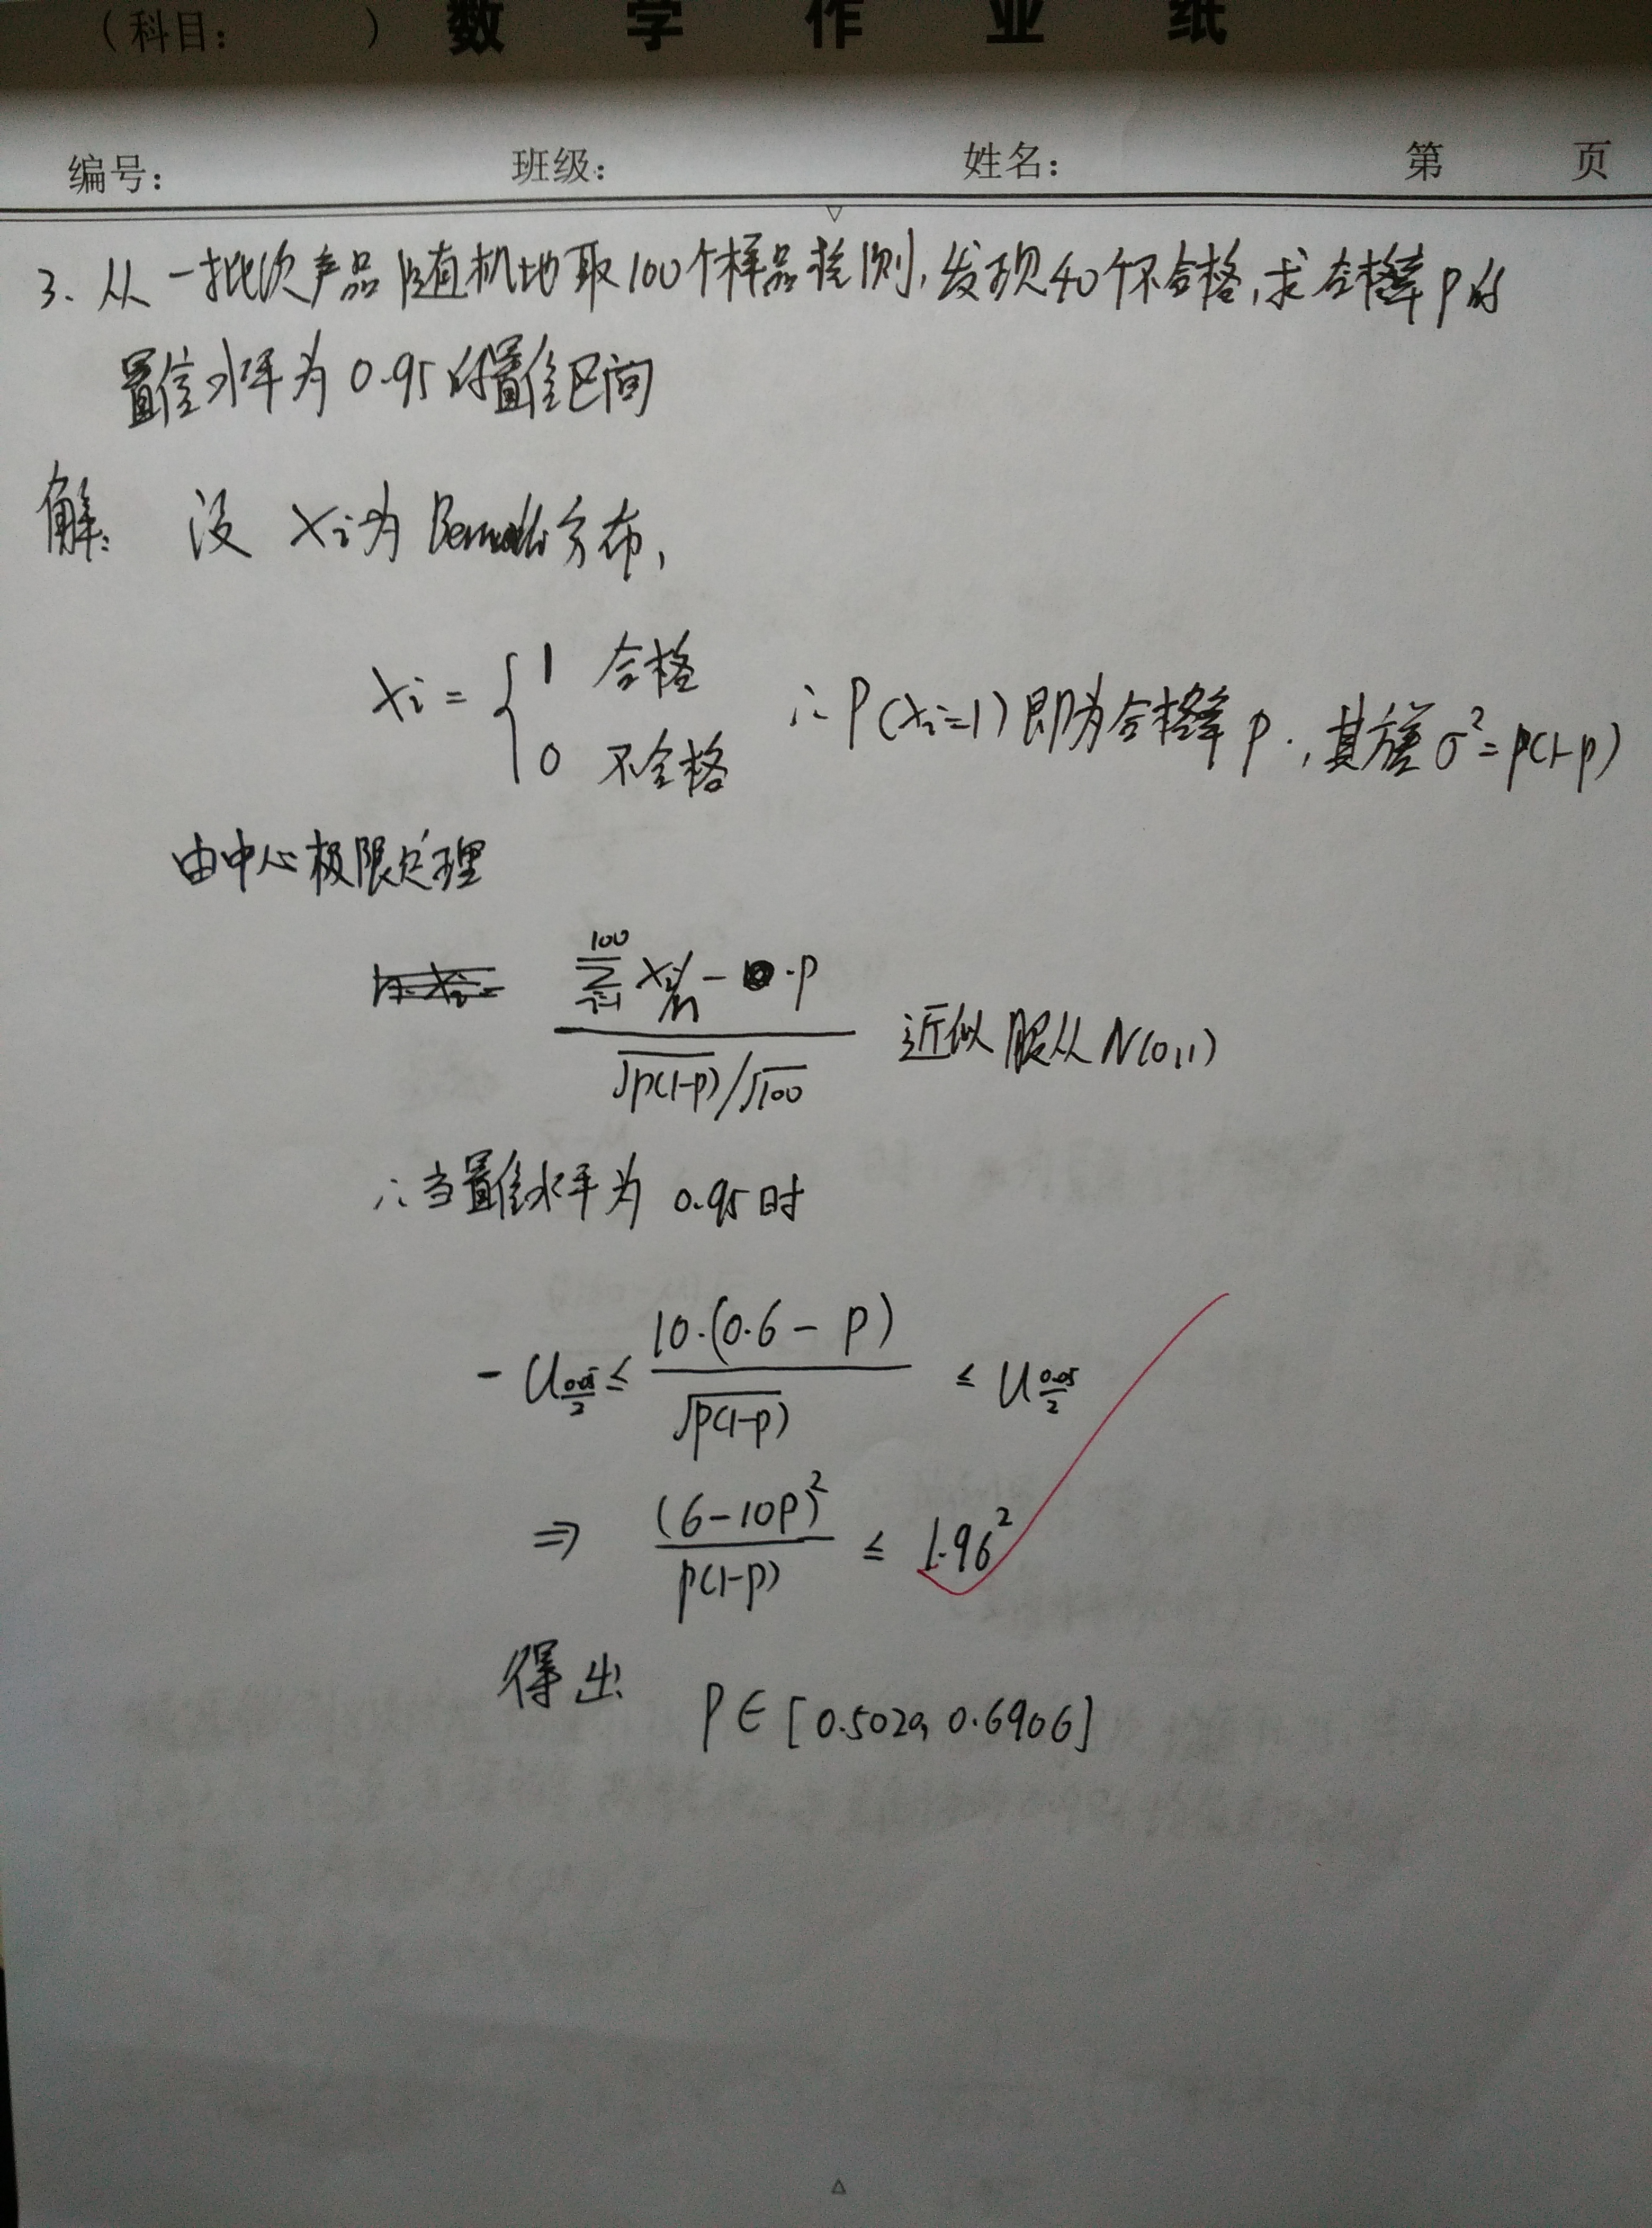 （科目： ） 数 学 作 业 纸
编号： 班级： 姓名： 第 页
3. 从一批次产品随机地取100个样品检测，发现40个不合格，求合格率p的
置信水平为0.95的置信区间
解： 设 Xi为Bernoulli分布，
Xi = { 1 合格
0 不合格
∴ P(Xi=1)即为合格率p，其方差σ²=p(1-p)
由中心极限定理
(∑_{i=1}^{100} Xi/n - p) / (√p(1-p)/√100) 近似服从N(0,1)
∴当置信水平为0.95时
-U_{0.05/2} ≤ 10·(0.6-p)/√p(1-p) ≤ U_{0.05/2}
⇒ (6-10p)²/p(1-p) ≤ 1.96²
得出 P∈[0.5020, 0.6906]